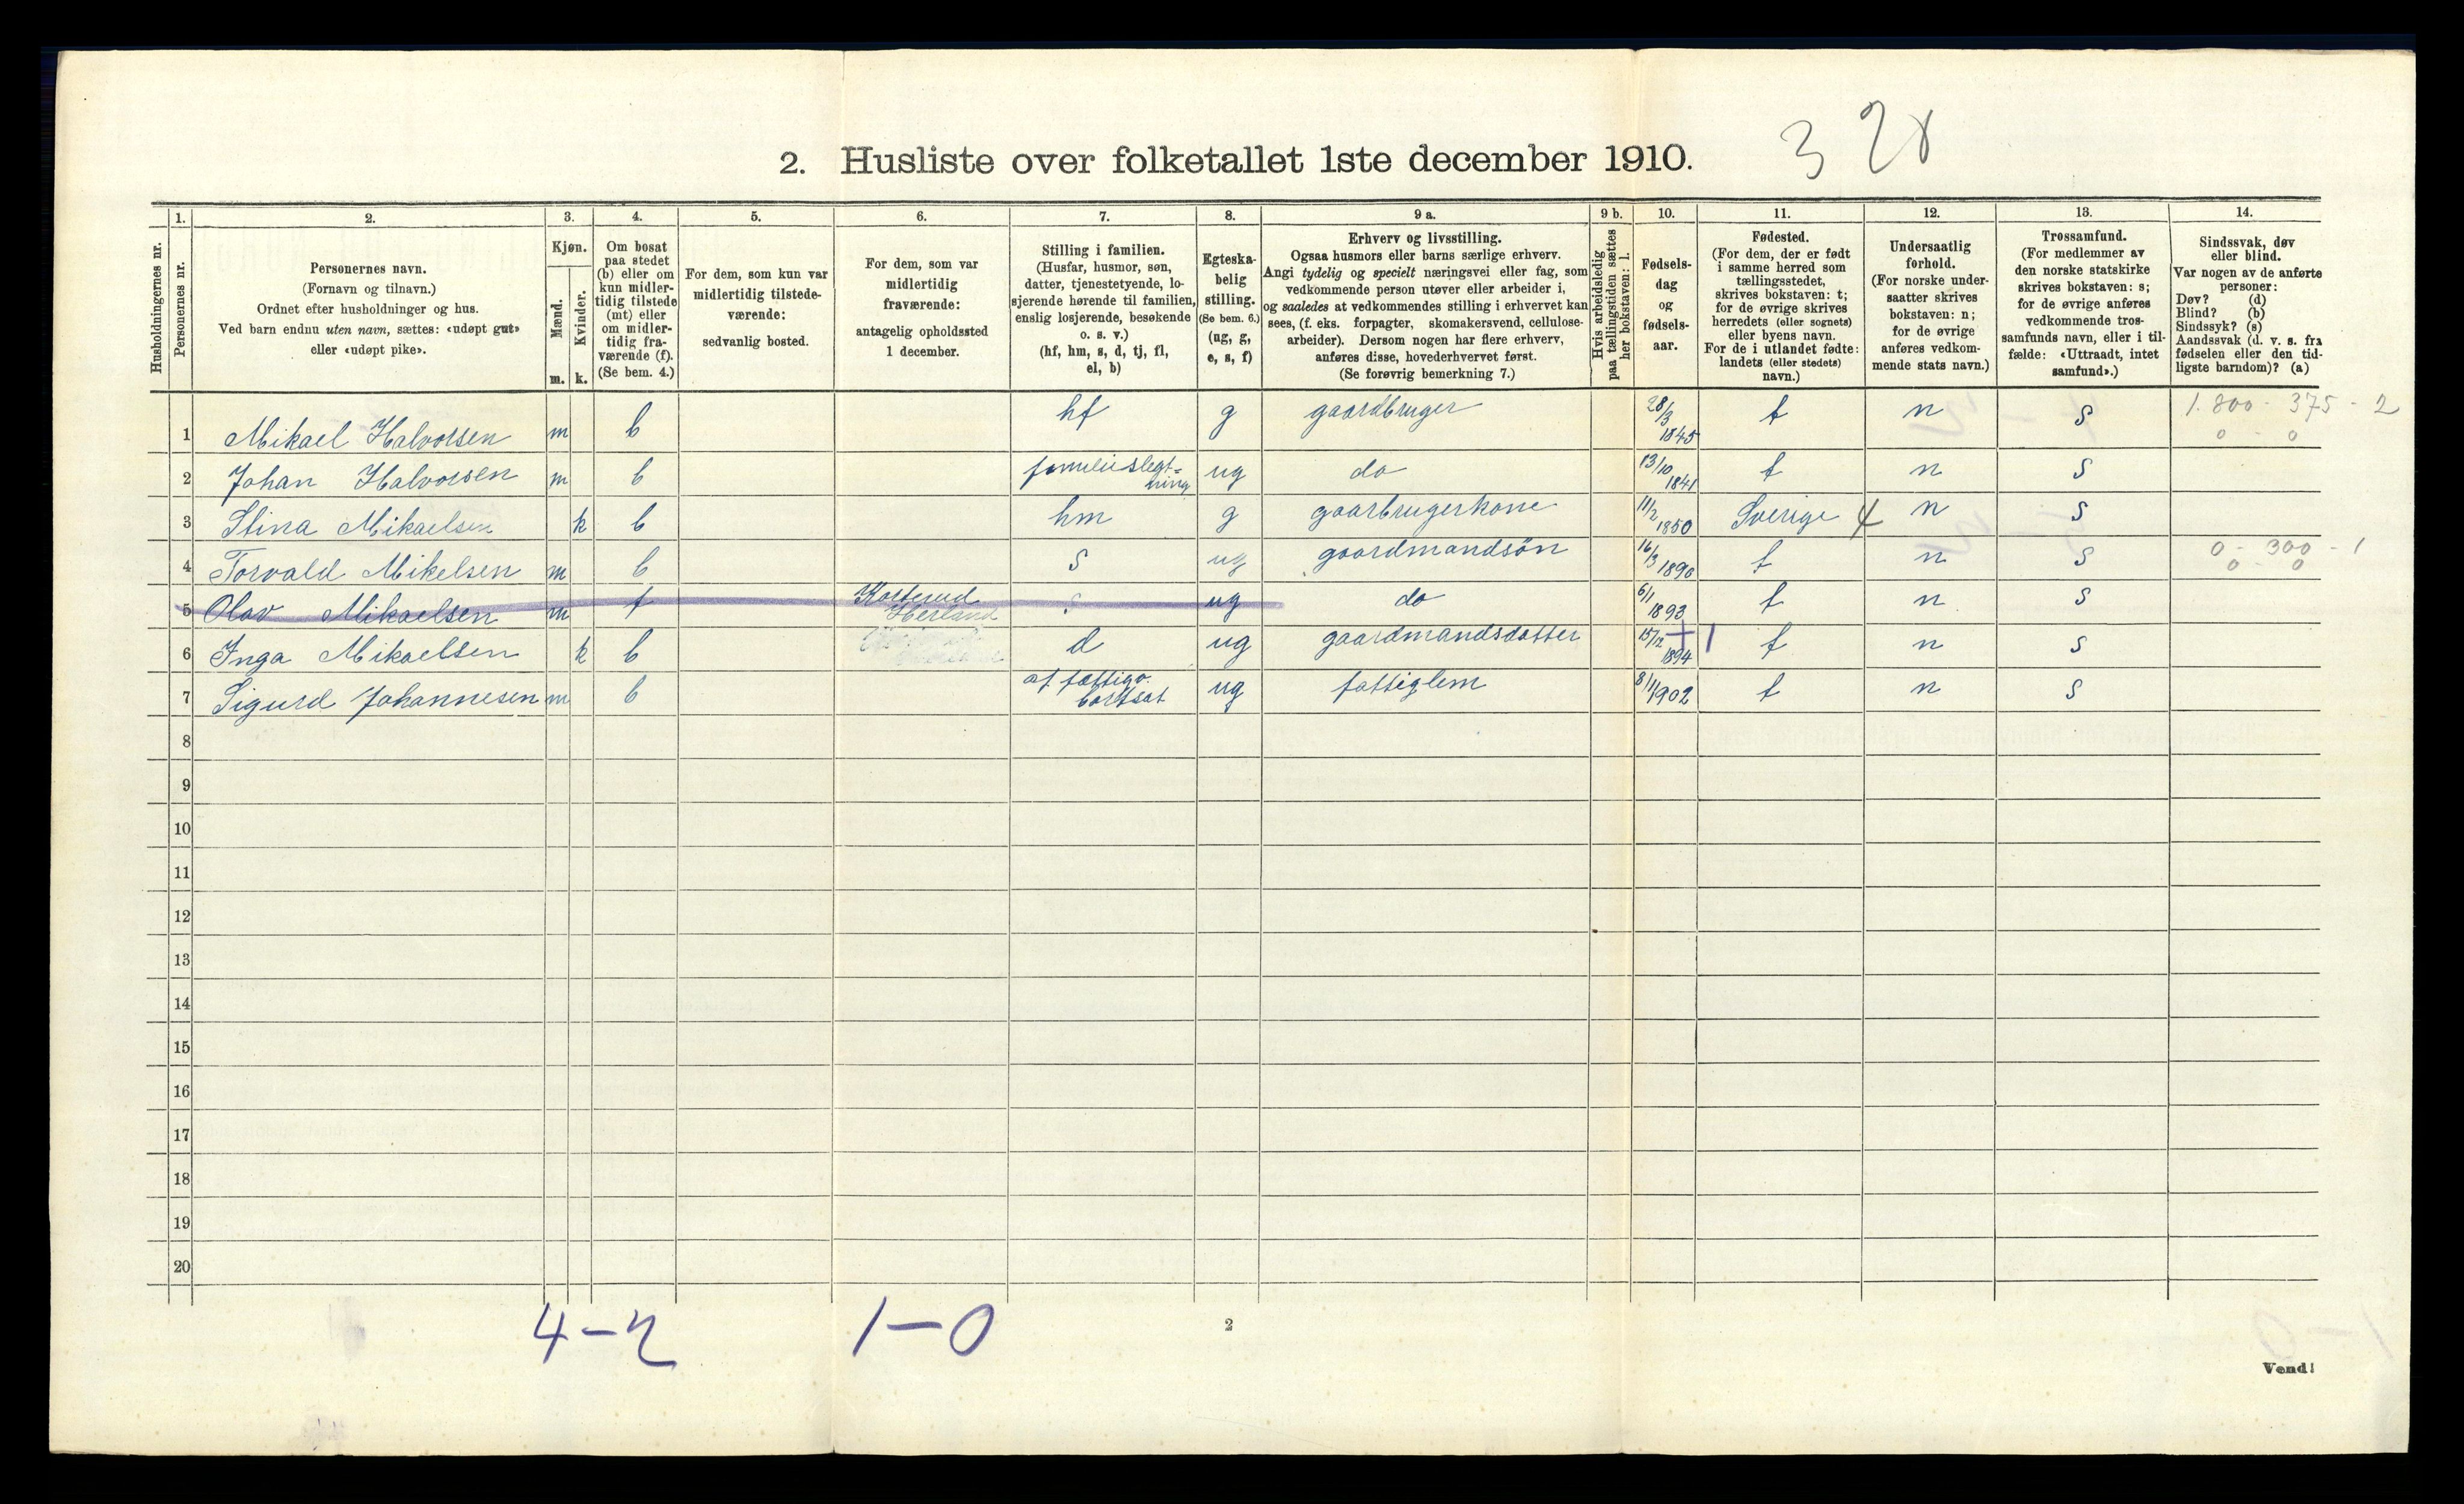 3 28
2. Husliste over folketallet 1ste december 1910.
Husholdningernes nr.
1.
Personernes nr.
2.
Personernes navn.
(Fornavn og tilnavn.)
Ordnet efter husholdninger og hus.
Ved barn endnu uten navn, sættes: «udøpt gut»
eller «udøpt pike».
3.
Kjøn.
Mænd.
m.
Kvinder.
k.
4.
Om bosat
paa stedet
(b) eller om
kun midler-
tidig tilstede
(mt) eller
om midler-
tidig fra-
værende (f).
(Se bem. 4.)
5.
For dem, som kun var
midlertidig tilstede-
værende:
sedvanlig bosted.
6.
For dem, som var
midlertidig
fraværende:
antagelig opholdssted
1 december.
7.
Stilling i familien.
(Husfar, husmor, søn,
datter, tjenestetyende, lo-
sjerende hørende til familien,
enslig losjerende, besøkende
o. s. v.)
(hf, hm, s, d, tj, fl,
el, b)
8.
Egteska-
belig
stilling.
(Se bem. 6.)
(ug, g,
e, s, f)
9 a.
Erhverv og livsstilling.
Ogsaa husmors eller barns særlige erhverv.
Angi tydelig og specielt næringsvei eller fag, som
vedkommende person utøver eller arbeider i,
og saaledes at vedkommendes stilling i erhvervet kan
sees, (f. eks. forpagter, skomakersvend, cellulose-
arbeider). Dersom nogen har flere erhverv,
anføres disse, hovederhvervet først.
(Se forøvrig bemerkning 7.)
9 b.
Hvis arbeidsledig
paa tællingstiden sættes
her bokstaven: l.
10.
Fødsels-
dag
og
fødsels-
aar.
11.
Fødested.
(For dem, der er født
i samme herred som
tællingsstedet,
skrives bokstaven: t;
for de øvrige skrives
herredets (eller sognets)
eller byens navn.
For de i utlandet fødte:
landets (eller stedets)
navn.)
12.
Undersaatlig
forhold.
(For norske under-
saatter skrives
bokstaven: n;
for de øvrige
anføres vedkom-
mende stats navn.)
13.
Trossamfund.
(For medlemmer av
den norske statskirke
skrives bokstaven: s;
for de øvrige anføres
vedkommende tros-
samfunds navn, eller i til-
fælde: «Uttraadt, intet
samfund».)
14.
Sindssvak, døv
eller blind.
Var nogen av de anførte
personer:
Døv? (d)
Blind? (b)
Sindssyk? (s)
Aandssvak (d. v. s. fra
fødselen eller den tid-
ligste barndom)? (a)
1 Mikael Halvorsen m b hf g gaardbruger 28/3 1845 t n s 1.800 - 375 - 2
0 - 0
2 Johan Halvorsen m b familieslegt=
ning ug do 13/10 1841 t n s
3 Stina Mikaelsen k b hm g gaarbrugerkone 11/2 1850 Sverige 4 n s
4 Torvald Mikelsen m b s ug gaardmandsön 16/3 1890 t n s 0 - 300 - 1
0 - 0
5 Olav Mikaelsen m f Kolterud
Herland s ug do 6/1 1893 t n s
6 Inga Mikaelsen k b d ug gaardmandsdatter 15/12 1894 t n s
7 Sigurd Johannesen m b af fattigv.
bortsat ug fattiglem 8/1 1902 t n s
8
9
10
11
12
13
14
15
16
17
18
19
20
4 - 2 1 - 0
2
Vend!